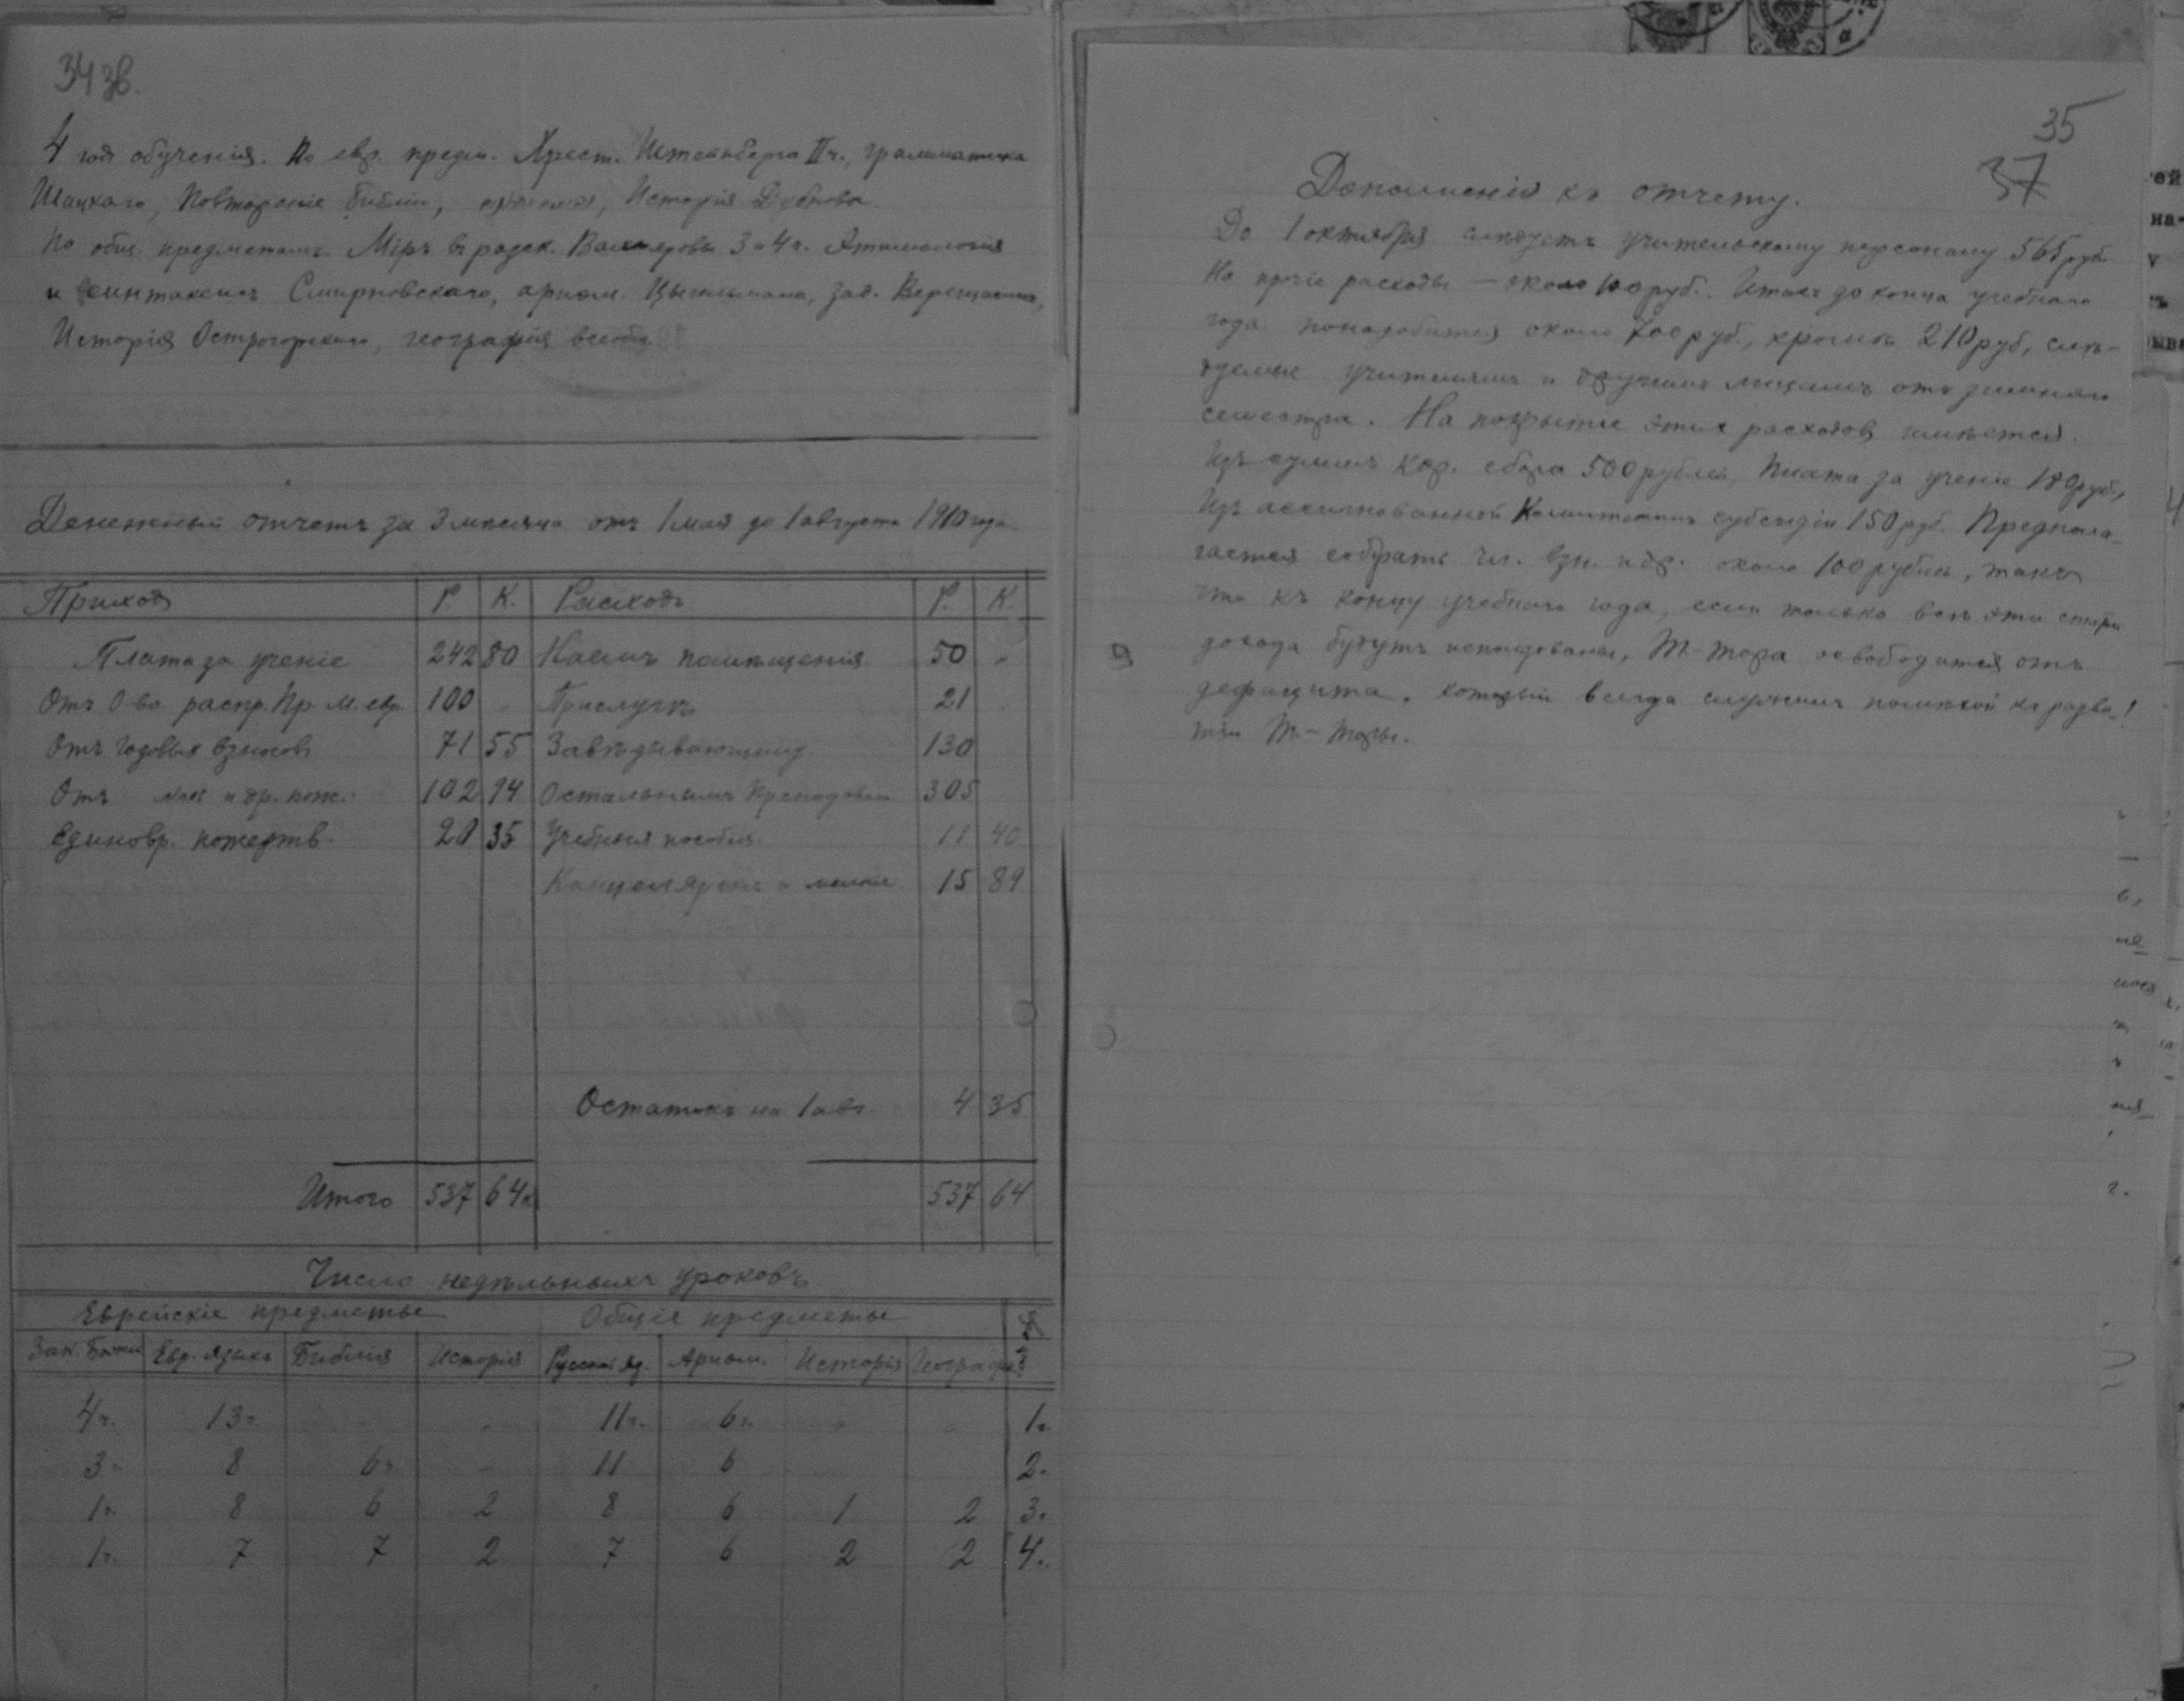 34 зв.
4 годъ обученія. По евр. предм. Хрест. II ч., грамматика
Шацкаго, Повтореніе библіи, Исторія Дубнова.
По общ. предметамъ. Міръ въ разск. Вахтерова 3 и 4 ч. Этимологія
и синтаксисъ Смирновскаго, ариѳм. Цыгельмана, зад. Верещагина,
Исторія Острогорскаго, географія всеобщ.
Денежный отчетъ за 3 мѣсяца отъ 1 мая до 1 августа 1910 года
Приходъ Р. К. Расходъ Р. К.
Плата за ученіе 242 80 Наемъ помѣщенія 50 "
Отъ О-ва распр. Пр. м. евр. 100 " Прислугѣ 21
Отъ годовыхъ взносовъ 71 55 Завѣдывающему 130
Отъ и др. пож. 102 94 Остальнымъ Преподават 305
Единовр. пожертв. 20 35 Учебныя пособія 11 40
Канцелярск. и мелкіе 15 89
Остатокъ на 1 авг. 4 35
Итого 537 64 к. 537 64
Число недѣльныхъ уроковъ
Еврейскіе предметы Общіе предметы
Зак. Божій Евр. языкъ Библія Исторія Русскій яз. Ариѳм. Исторія Географія
4 ч. 13 ч. " 11 ч. 6 ч. " " 1 г.
3 ч. 8 6 ч. " 11 6 2.
1 ч. 8 6 2 8 6 1 2 3.
1 ч. 7 7 2 7 6 2 2 4.
35
37
Дополненіе къ отчету.
До 1 октября слѣдуетъ учительскому персоналу 565 руб.
На прочіе расходы — около 100 руб. Итакъ до конца учебнаго
года понадобится около 700 руб., кромѣ 210 руб., слѣ-
дуемые учителямъ и другимъ лицамъ отъ зимняго
семестра. На покрытіе этихъ расходовъ имѣется:
Изъ суммъ кор. сбора 500 рублей, Плата за ученіе 180 руб.,
Изъ ассигнованной Комитетомъ субсидіи 150 руб. Предпола-
гается собрать чл. взн. и др. около 100 рублей, такъ
что къ концу учебнаго года, если только всѣ эти статьи
дохода будутъ использованы, Т.-тора освободится отъ
дефицита, который всегда служилъ помѣхой къ разви-
тію Т.-торы.